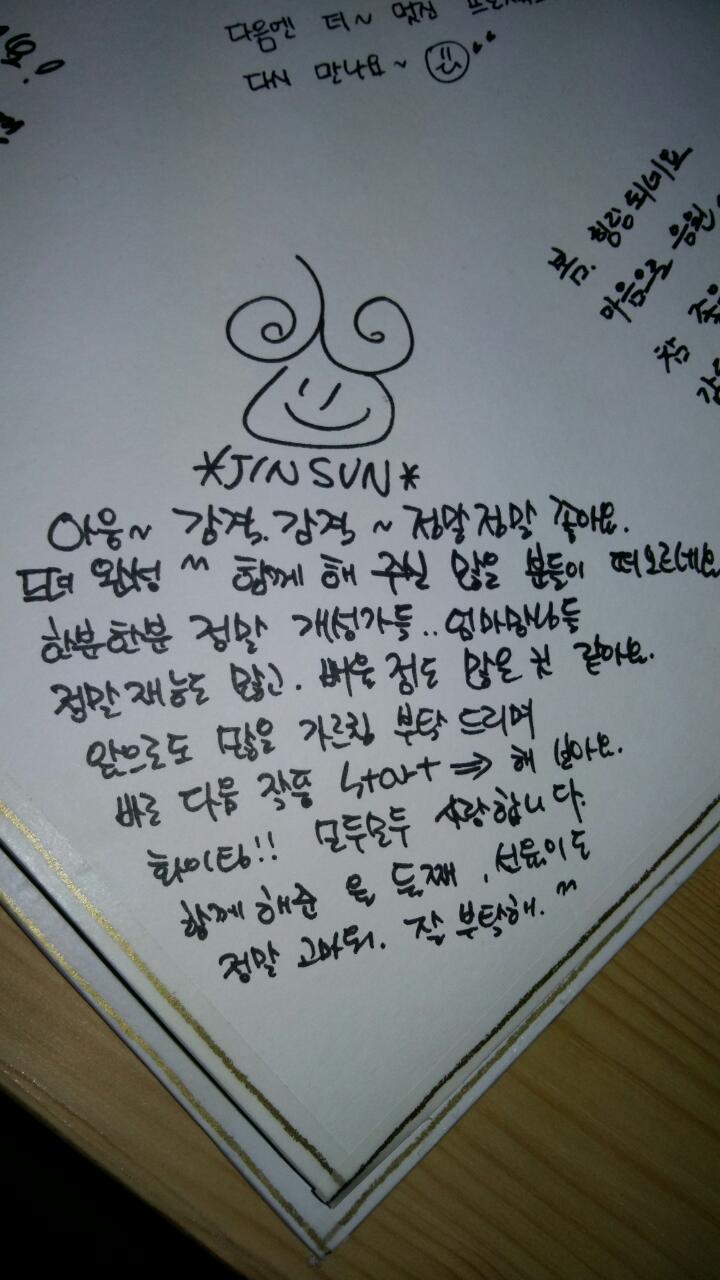 다음엔 더~ 멋진
다시 만나요~
봄. 힐링되네요
마음으로 응원
참
*JINSUN*
아웅~ 감격.감격 ~ 정말정말 좋아요.
드뎌 완성 ^^ 함께 해 주신 많은 분들이 떠오르네요
한분한분 정말 개성가득.. 엄마맘가득
정말 재능도 많고. 배울 점도 많은 것 같아요.
앞으로도 많은 가르침 부탁 드리며
바로 다음 작품 start ⇒ 해 보아요.
화이팅!! 모두모두 사랑합니다.
함께 해준 울 둘째, 선유이도
정말 고마워. 잘 부탁해. ^^